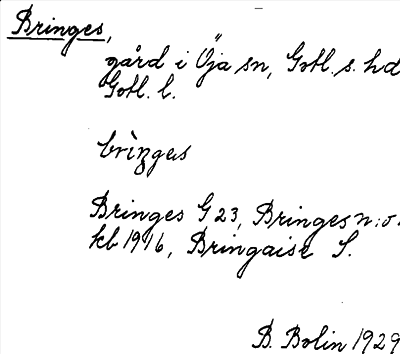 Bringes,
gård i Öja sn, Gotl. s. hd
Gotl. l.
brìŋgəs
Bringes G 23, Bringes n:o 1
kb 1916, Bringaise S.
B. Bolin 1929